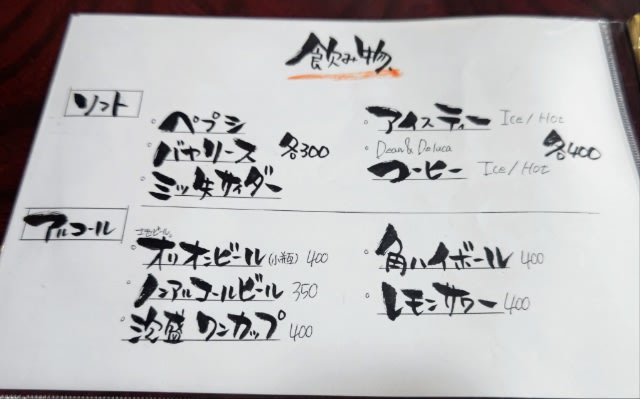 飲み物
ソフト
ペプシ
バヤリース 各300
ミツ矢サイダー
アイスティー Ice/Hot
Dean & Deluca 各400
コーヒー Ice/Hot
アルコール
オリオンビール(小瓶) 400
ノンアルコールビール 350
泡盛ワンカップ 400
角ハイボール 400
レモンサワー 400